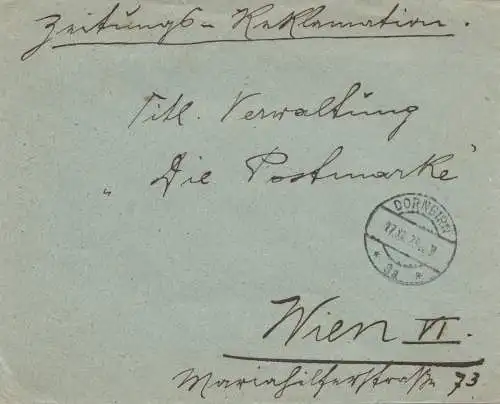 Zeitungs-Reklamation.
Titl. Verwaltung
„Die Postmarke"
DORNBIRN
Wien VI.
Mariahilferstraße 73